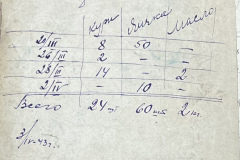 кур Яичка Масло
24/III 8 50 —
26/III 2 — —
28/III 14 — 2
2/IV — 10 —
Всего 24 шт 60 шт 2 кг
3/IV-43 г.